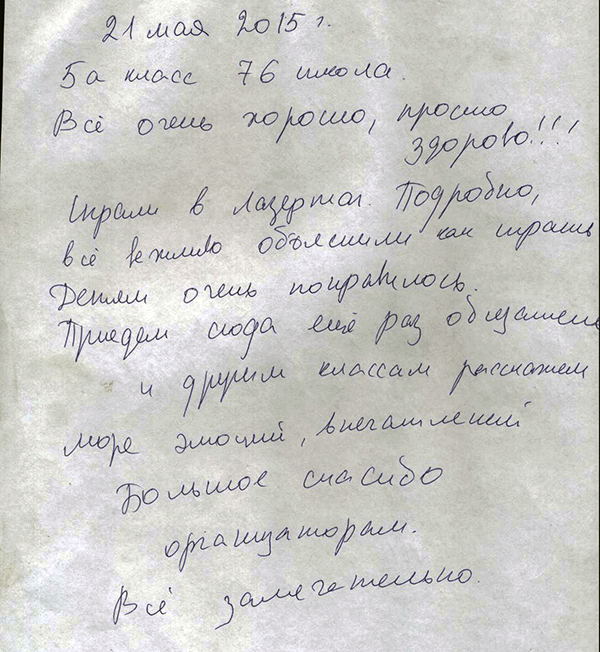 21 мая 2015 г.
5а класс 76 школа.
Всё очень хорошо, просто
здорово!!!
Играли в лазертаг. Подробно,
всё вежливо объяснили как играть
Детям очень понравилось.
Приедем сюда ещё раз обязательно
и другим классам расскажем
море эмоций, впечатлений
Большое спасибо
организаторам.
Всё замечательно.